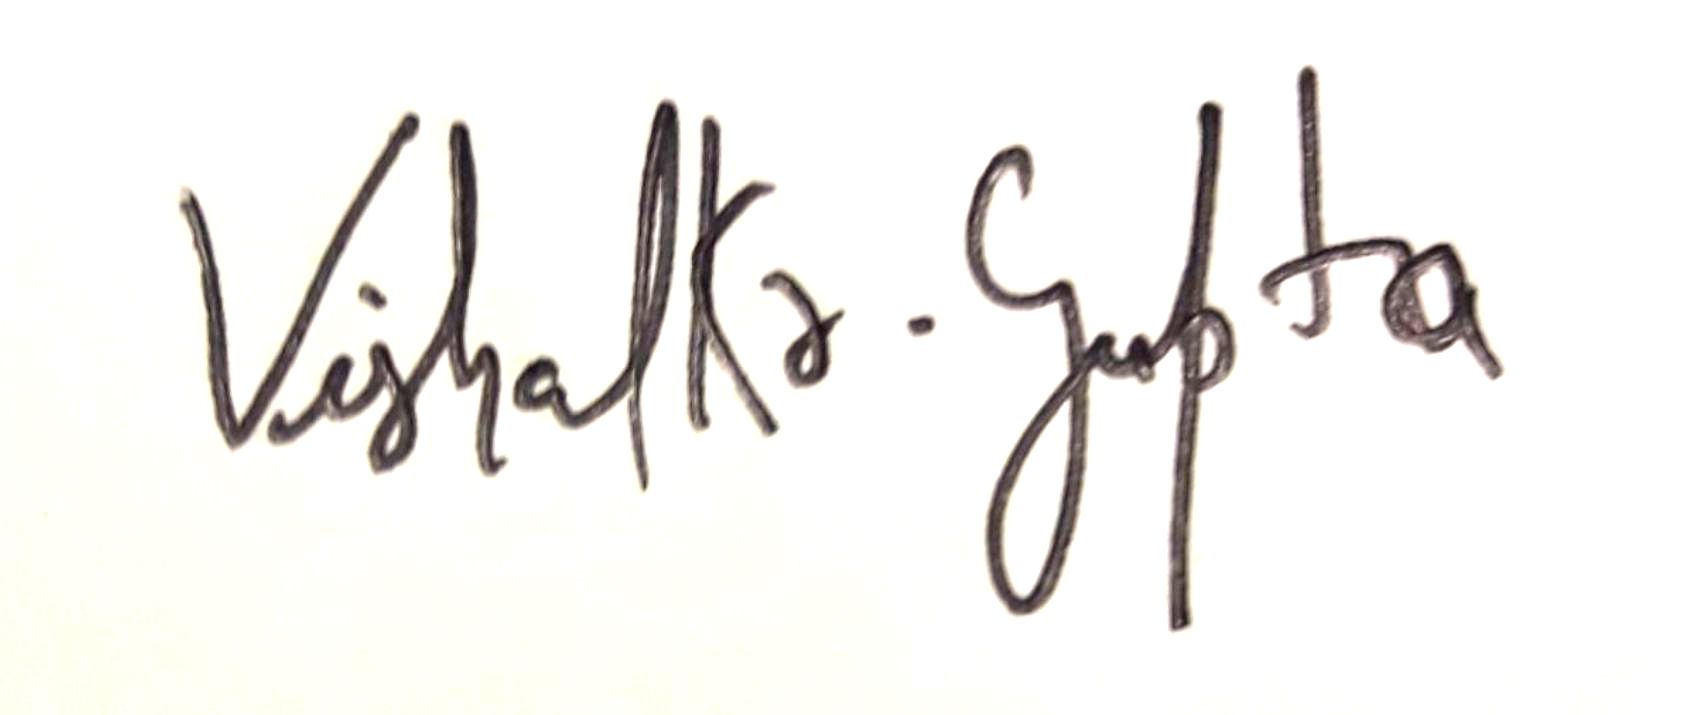 Vishal Kr. Gupta